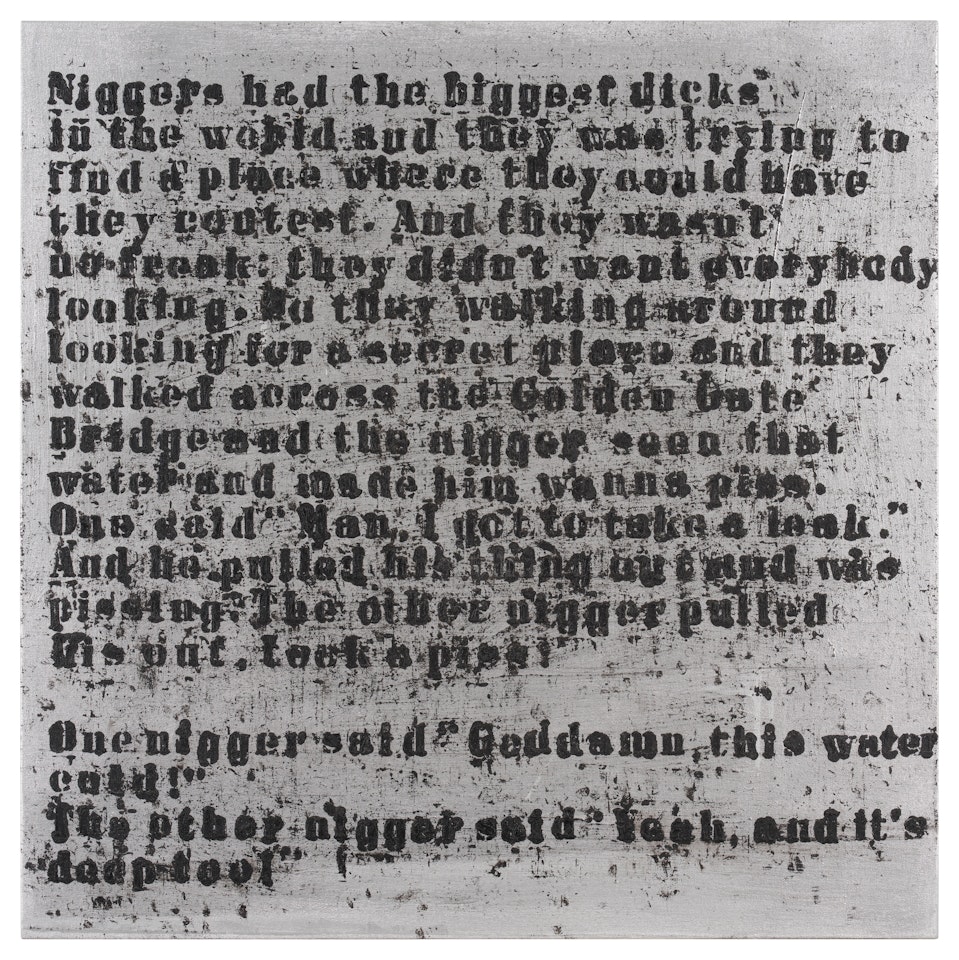 Niggers had the biggest dicks
in the world and they was trying to
find a place where they could have
they contest. And they wasn't
no freak: they didn't want everybody
looking. So they walking around
looking for a secret place and they
walked across the Golden Gate
Bridge and the nigger seen that
water and made him wanna piss.
One said "Man, I got to take a leak."
And he pulled his thing out and was
pissing. The other nigger pulled
his out, took a piss.
One nigger said "Goddamn, this water
cold!"
The other nigger said "Yeah, and it's
deep too!"